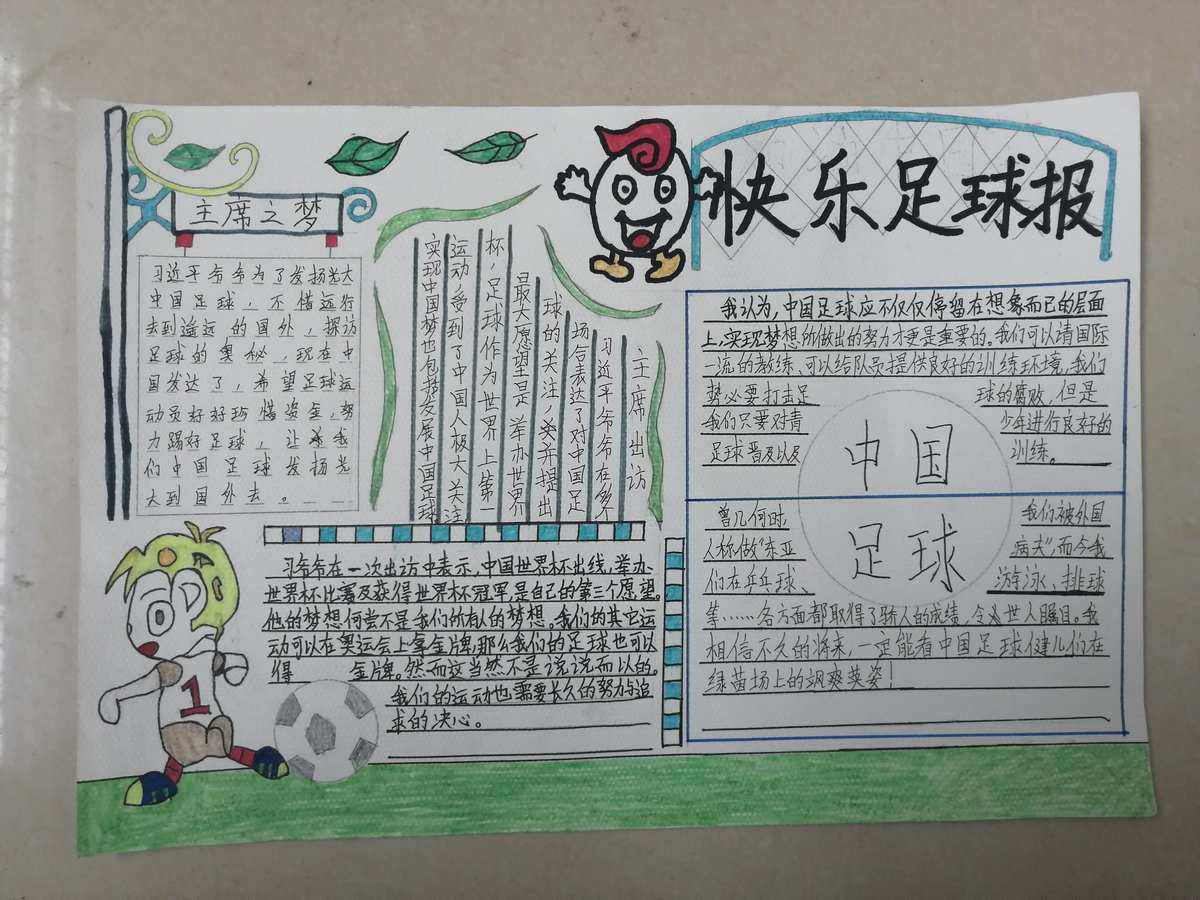 快乐足球报
主席之梦
习近平爷爷为了发扬光大
中国足球，不惜远行
去到遥远的国外，探访
足球的奥秘，现在中
国发达了，希望足球运
动员好好珍惜资金，努
力踢好足球，让我
们中国足球发扬光
大到国外去。
主席出访
习近平爷爷在多个
场合表达了对中国足
球的关注，并提出
最大愿望是举办世界
杯，足球作为世界上第一
运动，受到了中国人极大关注
实现中国梦也包梦发展中国足球
习爷爷在一次出访中表示，中国世界杯出线，举办
世界杯比赛及获得世界杯冠军，是自己的第三个愿望。
他的梦想何尝不是我们所有人的梦想。我们的其它运
动可以在奥运会上拿金牌，那么我们的足球也可以
得 金牌。然而这当然不是说说而以的。
我们的运动也需要长久的努力与追
求的决心。
我认为，中国足球应不仅仅停留在想象而已的层面
上，实现梦想所做出的努力才更是重要的。我们可以请国际
一流的教练、可以给队员提供良好的训练环境，我们
势必要打击足 球的腐败，但是
我们只要对青 少年进行良好的
足球普及以及 训练。
中国
足球
曾几何时 我们被外国
人称做“东亚 病夫”而今我
们在乒乓球、 游泳、排球
等……各方面都取得了骄人的成绩，令世人瞩目。我
相信不久的将来，一定能看中国足球健儿们在
绿茵场上的飒爽英姿！
1